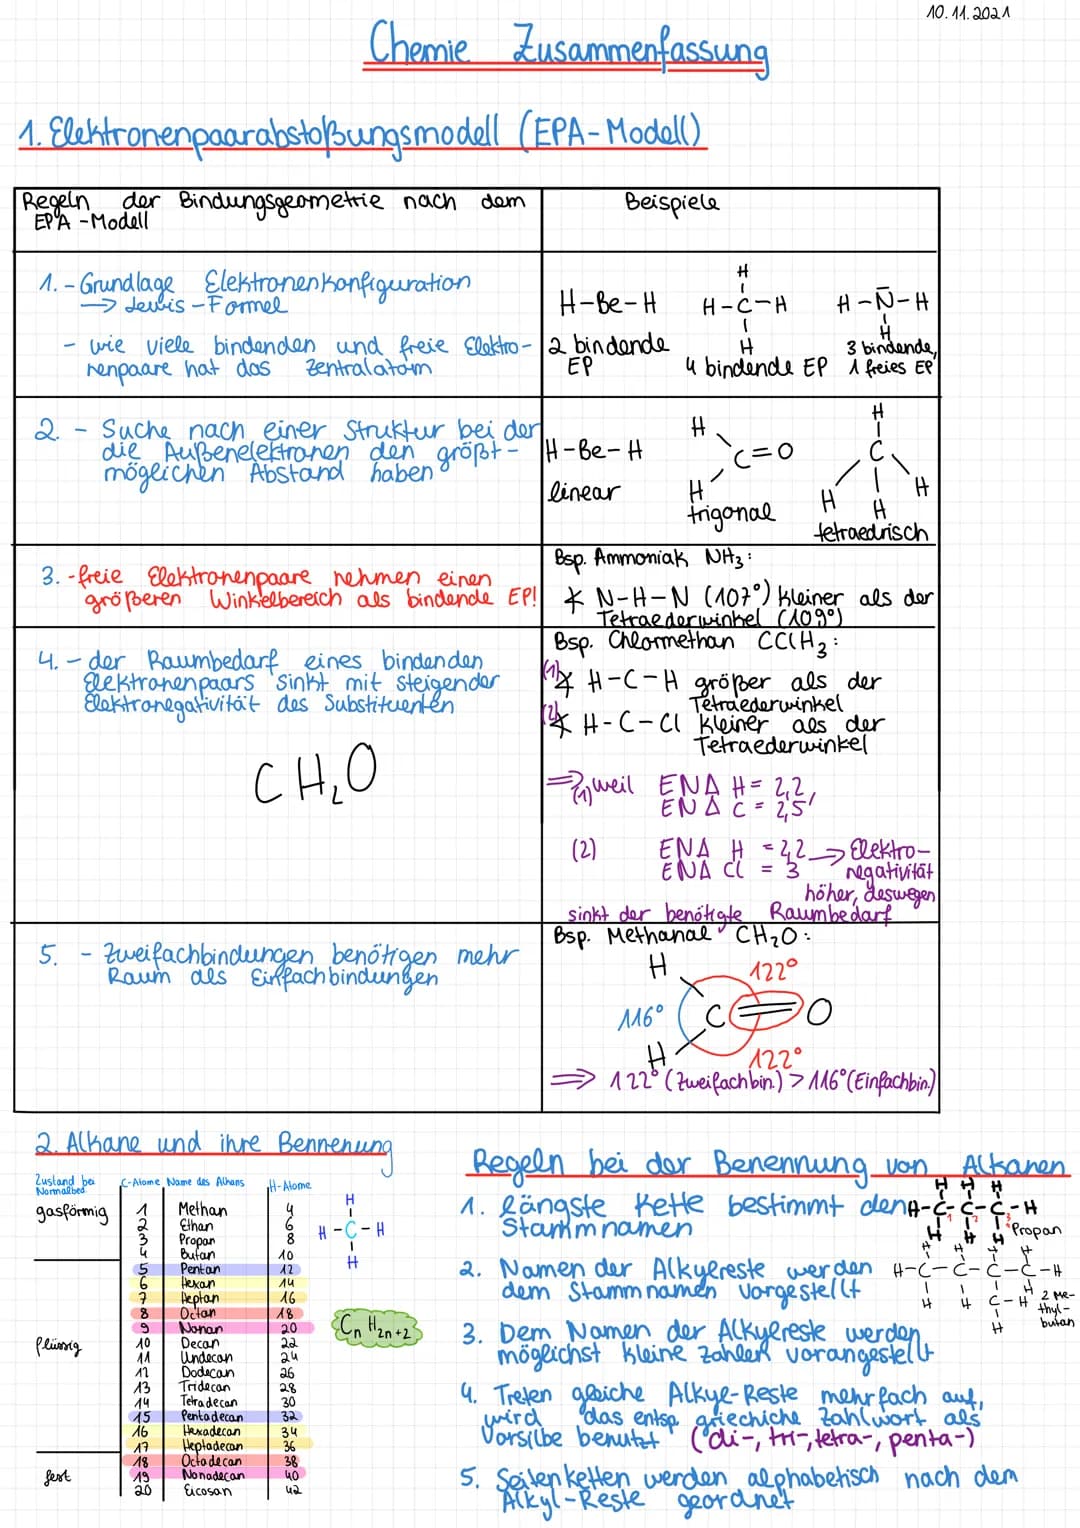 10.11.2021
Chemie Zusammenfassung
1. Elektronenpaarabstoßungsmodell (EPA-Modell)
Regeln der Bindungsgeometrie nach dem
EPA-Modell
Beispiele
1. - Grundlage Elektronenkonfiguration
→ Lewis-Formel
- wie viele bindenden und freie Elektro-
nenpaare hat das Zentralatom
H-Be-H
2 bindende
EP
H
H-C-H
H
4 bindende EP
H-N̄-H
H
3 bindende,
1 freies EP
2. - Suche nach einer Struktur bei der
die Außenelektronen den größt-
möglichen Abstand haben
H-Be-H
linear
H
C=O
H
trigonal
H
C
H H H
tetraedrisch
3. -freie Elektronenpaare nehmen einen
größeren Winkelbereich als bindende EP!
Bsp. Ammoniak NH₃:
∡ N-H-N (107°) kleiner als der
Tetraederwinkel (109°)
4. - der Raumbedarf eines bindenden
Elektronenpaars sinkt mit steigender
Elektronegativität des Substituenten
CH₂O
Bsp. Chlormethan CClH₃:
(1) ∡ H-C-H größer als der
Tetraederwinkel
(2) ∡ H-C-Cl kleiner als der
Tetraederwinkel
⇒ (1) weil ENΔ H = 2,2,
ENΔ C = 2,5
(2) ENΔ H = 2,2 → Elektro-
ENΔ Cl = 3 negativität
höher, deswegen
sinkt der benötigte Raumbedarf
5. - Zweifachbindungen benötigen mehr
Raum als Einfachbindungen
Bsp. Methanal CH₂O:
H 122°
116° C=O
H 122°
⇒ 122° (Zweifachbin.) > 116° (Einfachbin.)
2. Alkane und ihre Bennenung
Zustand bei
Normalbed.
C-Atome Name des Alkans H-Atome
gasförmig 1 Methan 4
2 Ethan 6
3 Propan 8
4 Butan 10
5 Pentan 12
6 Hexan 14
7 Heptan 16
8 Octan 18
9 Nonan 20
flüssig 10 Decan 22
11 Undecan 24
12 Dodecan 26
13 Tridecan 28
14 Tetradecan 30
15 Pentadecan 32
16 Hexadecan 34
17 Heptadecan 36
18 Octadecan 38
fest 19 Nonadecan 40
20 Eicosan 42
H
H-C-H
H
CₙH₂ₙ₊₂
Regeln bei der Benennung von Alkanen
1. längste Kette bestimmt den
Stammnamen
H H H
H-C-C-C-H
1 2 3
H H H
Propan
2. Namen der Alkylreste werden
dem Stammnamen vorgestellt
H H H H
H-C-C-C-C-H
H H C-H H
H
2 Me-
thyl-
butan
3. Dem Namen der Alkylreste werden
möglichst kleine Zahlen vorangestellt
4. Treten gleiche Alkyl-Reste mehrfach auf,
wird das entsp. griechiche Zahlwort als
Vorsilbe benutzt (di-, tri-, tetra-, penta-)
5. Seitenketten werden alphabetisch nach dem
Alkyl-Reste geordnet